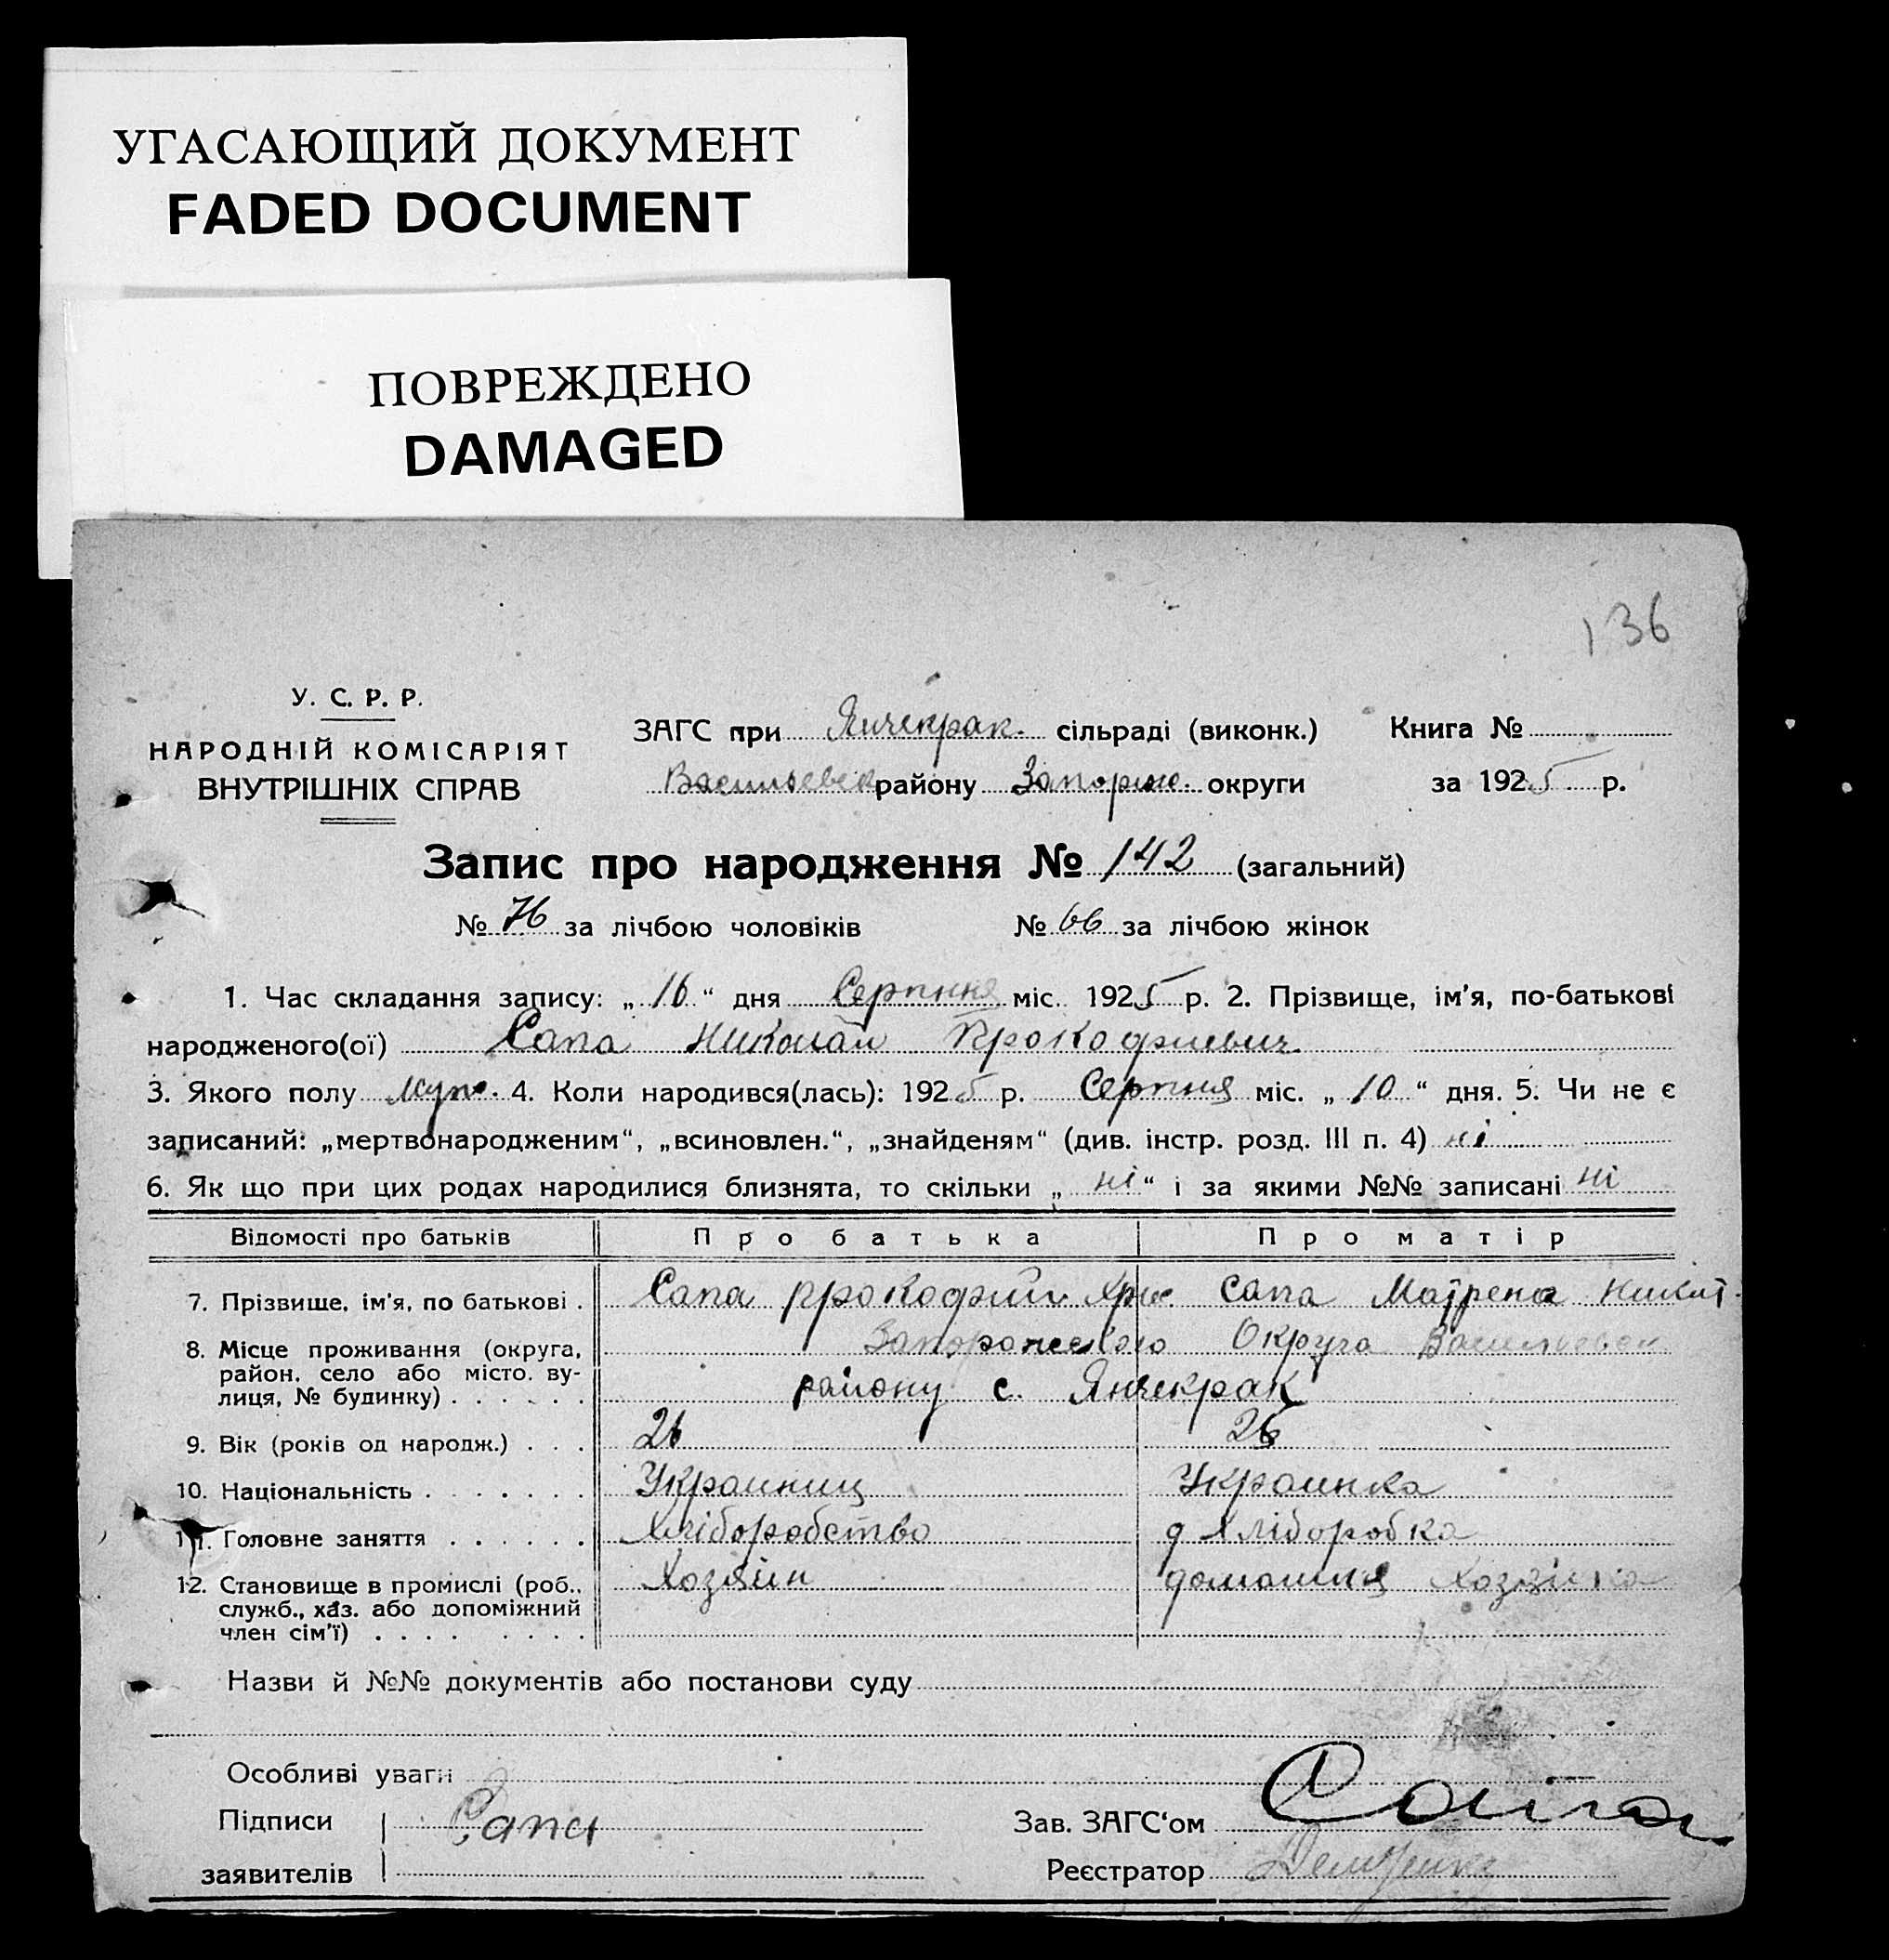 УГАСАЮЩИЙ ДОКУМЕНТ
FADED DOCUMENT
ПОВРЕЖДЕНО
DAMAGED
136
У. С. Р. Р.
НАРОДНІЙ КОМІСАРІЯТ
ВНУТРІШНІХ СПРАВ
ЗАГС при Янчекрак. сільраді (виконк.) Книга №
Васильевск району Запориж. округи за 1925 р.
Запис про народження № 142 (загальний)
№ 76 за лічбою чоловіків № 66 за лічбою жінок
1. Час складання запису: „16“ дня Серпння міс. 1925 р. 2. Прізвище, ім’я, по-батькові
народженого(ої) Сапа Николай Прокофиевич
3. Якого полу Муж. 4. Коли народився(лась): 1925 р. Серпня міс. „10“ дня. 5. Чи не є
записаний: „мертвонародженим“, „всиновлен.“, „знайденям“ (див. інстр. розд. III п. 4) ні
6. Як що при цих родах народилися близнята, то скільки „ні“ і за якими №№ записані ні
Відомості про батьків Про батька Про матір
7. Прізвище, ім’я, по батькові . Сапа Прокофий Сапа Матрена Никит.
8. Місце проживання (округа, Округа Васильевск
район, село або місто, ву-
лиця, № будинку) . . . . . . району с. Янчекрак
9. Вік (років од народж.) . . . 26 26
10. Національність . . . . . . . Украиниц Украинка
11. Головне заняття . . . . . . Хліборобство д Хліборобка
12. Становище в промислі (роб., Хозяин домашня Хозяйка
служб., хаз. або допоміжний
член сім’ї) . . . . . . . .
Назви й №№ документів або постанови суду
Особливі уваги
Підписи Сапа Зав. ЗАГС‘ом
заявителів Реєстратор